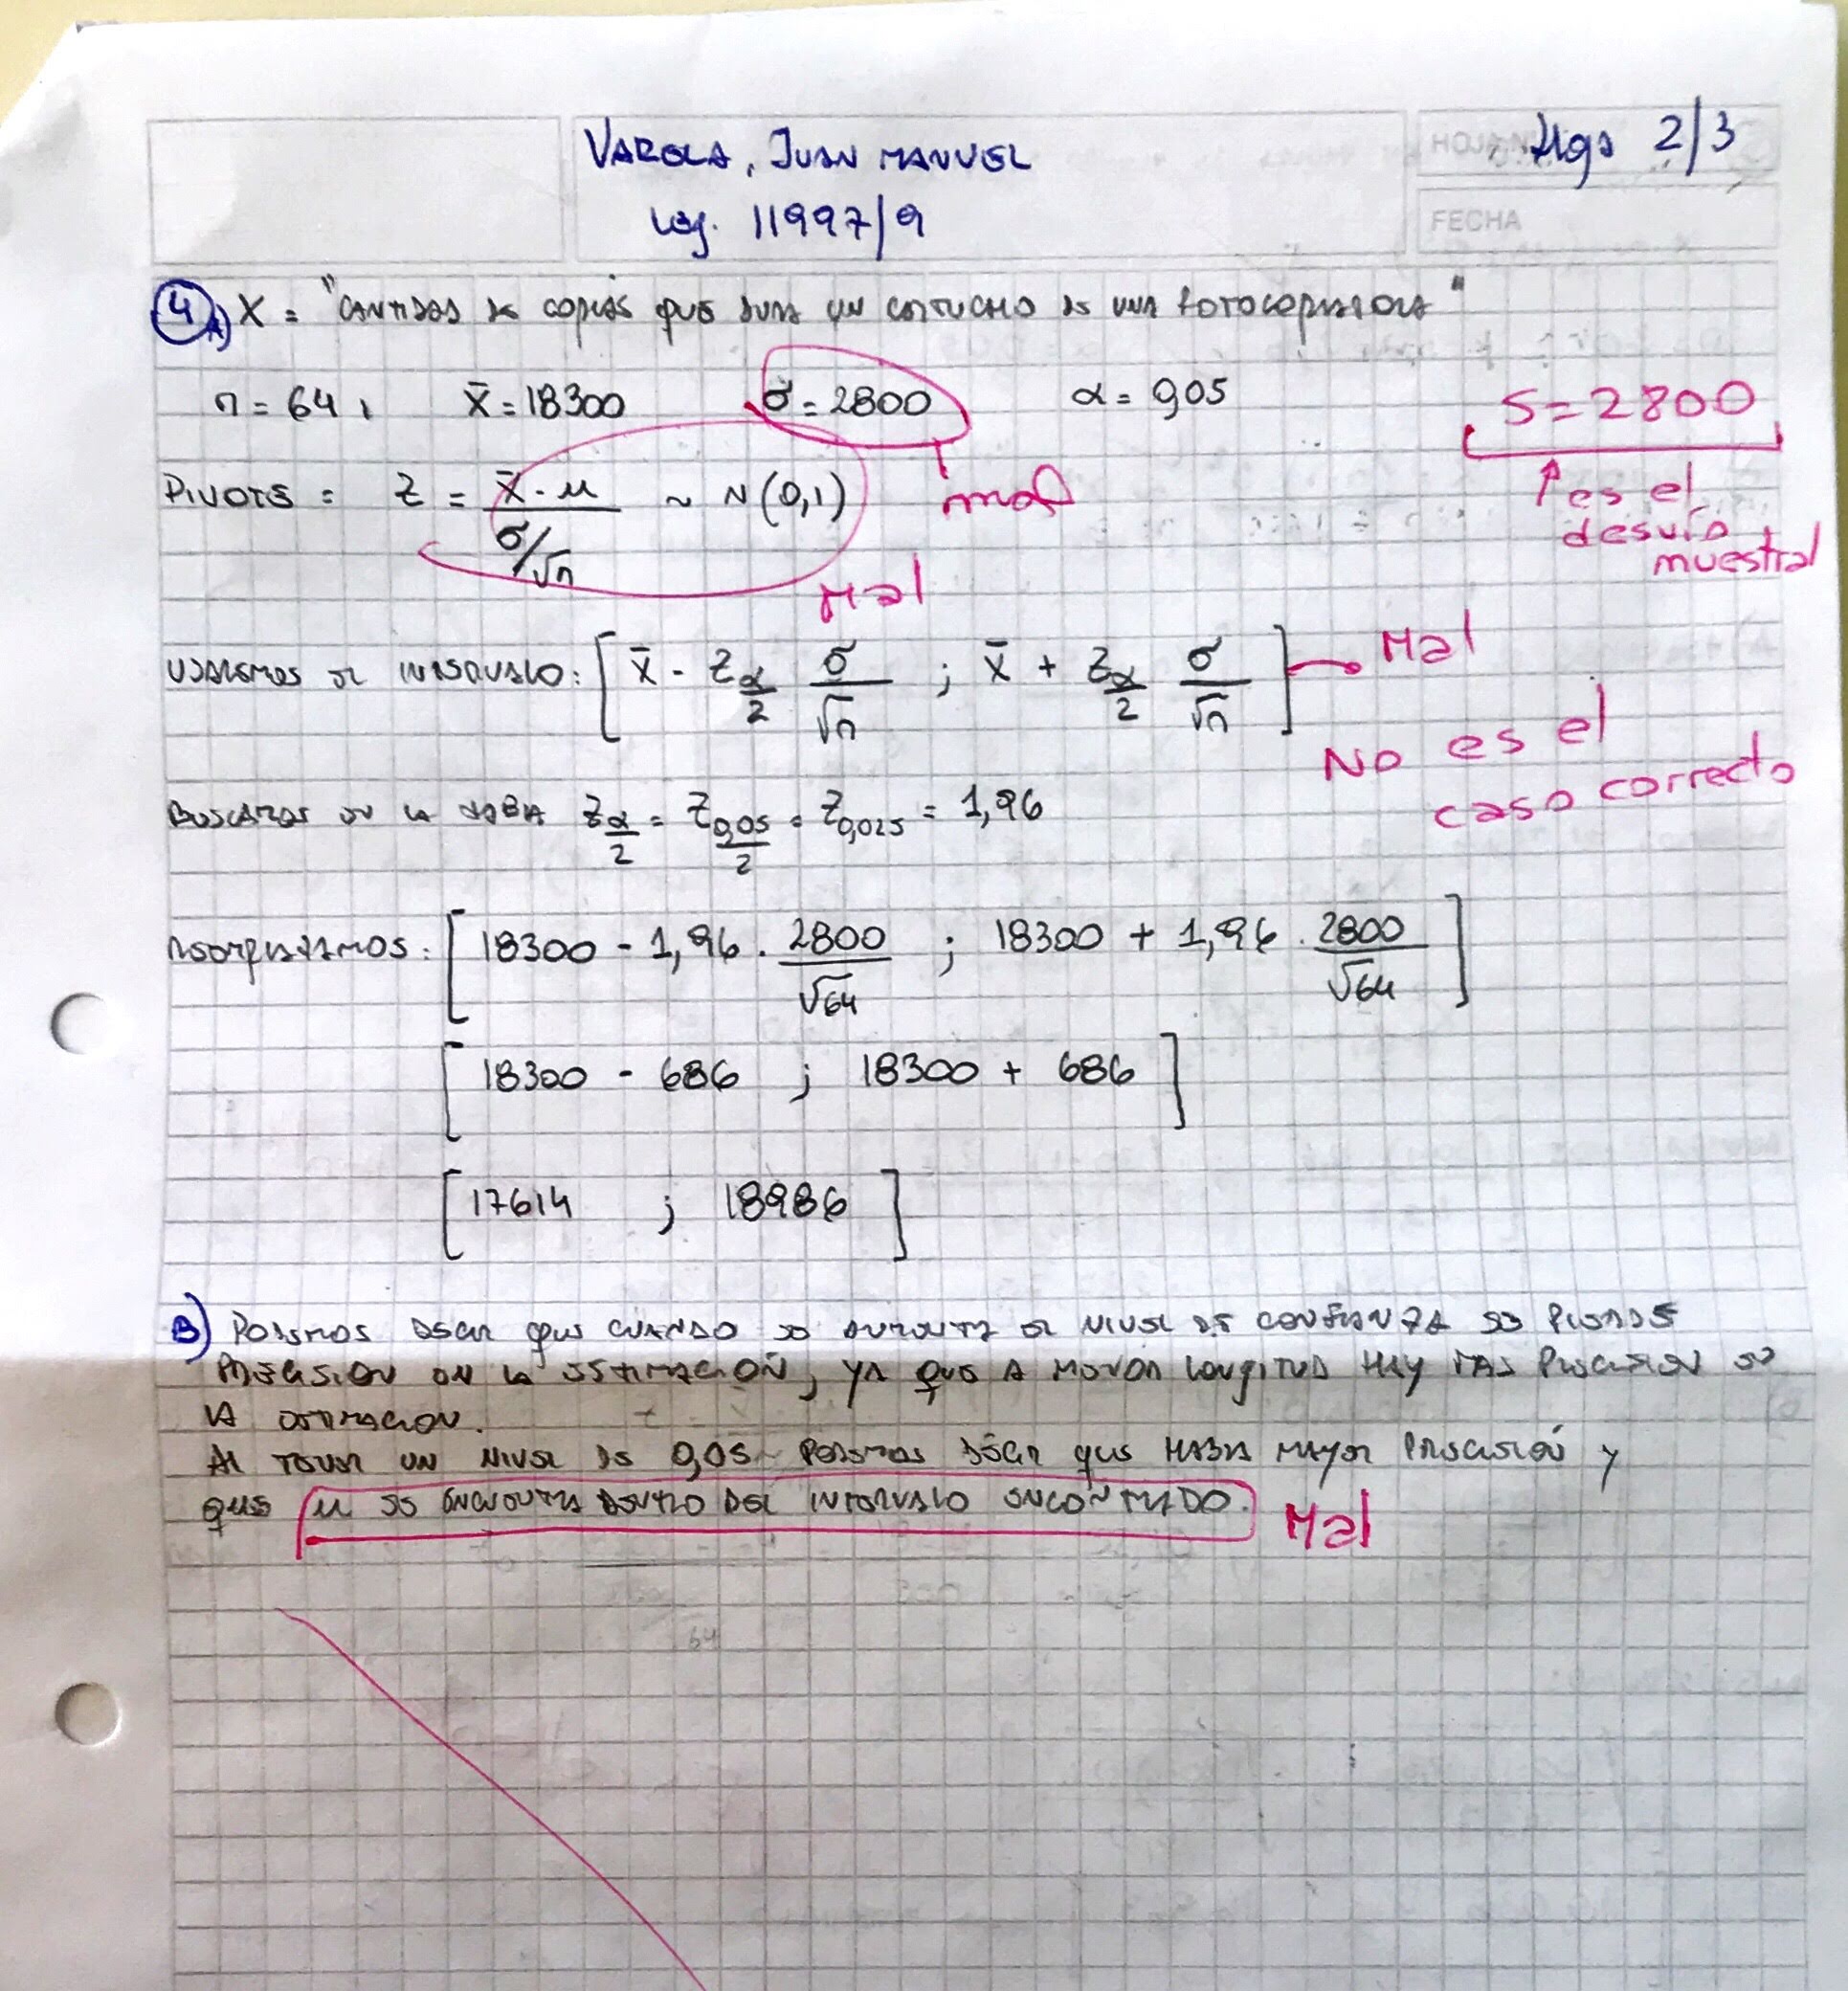 VAROLA, JUAN MANUEL
Leg. 11997/9
HOJA Nº
Hoja 2/3
FECHA
4 A) X = "CANTIDAD DE COPIAS QUE DURA UN CARTUCHO DE UNA FOTOCOPIADORA"
n = 64, x̄ = 18300 σ = 2800 α = 0,05
S = 2800
↑ es el desvío muestral
mal
PIVOTE = Z = (x̄ - μ) / (σ/√n) ~ N(0,1)
Mal
USAREMOS EL INTERVALO: [ x̄ - Z_{α/2} σ/√n ; x̄ + Z_{α/2} σ/√n ]
Mal
No es el caso correcto
BUSCAMOS EN LA TABLA Z_{α/2} = Z_{0,05/2} = Z_{0,025} = 1,96
REEMPLAZAMOS: [ 18300 - 1,96 . 2800/√64 ; 18300 + 1,96 . 2800/√64 ]
[ 18300 - 686 ; 18300 + 686 ]
[ 17614 ; 18986 ]
B) PODEMOS DECIR QUE CUANDO SE AUMENTA EL NIVEL DE CONFIANZA SE PIERDE
PRECISION EN LA ESTIMACIÓN, YA QUE A MENOR LONGITUD HAY MAS PRECISION EN
LA ESTIMACION.
AL TENER UN NIVEL DE 0,05 PODEMOS DECIR QUE HABRA MAYOR PRECISIÓN Y
QUE μ SE ENCUENTRA DENTRO DEL INTERVALO ENCONTRADO.
Mal